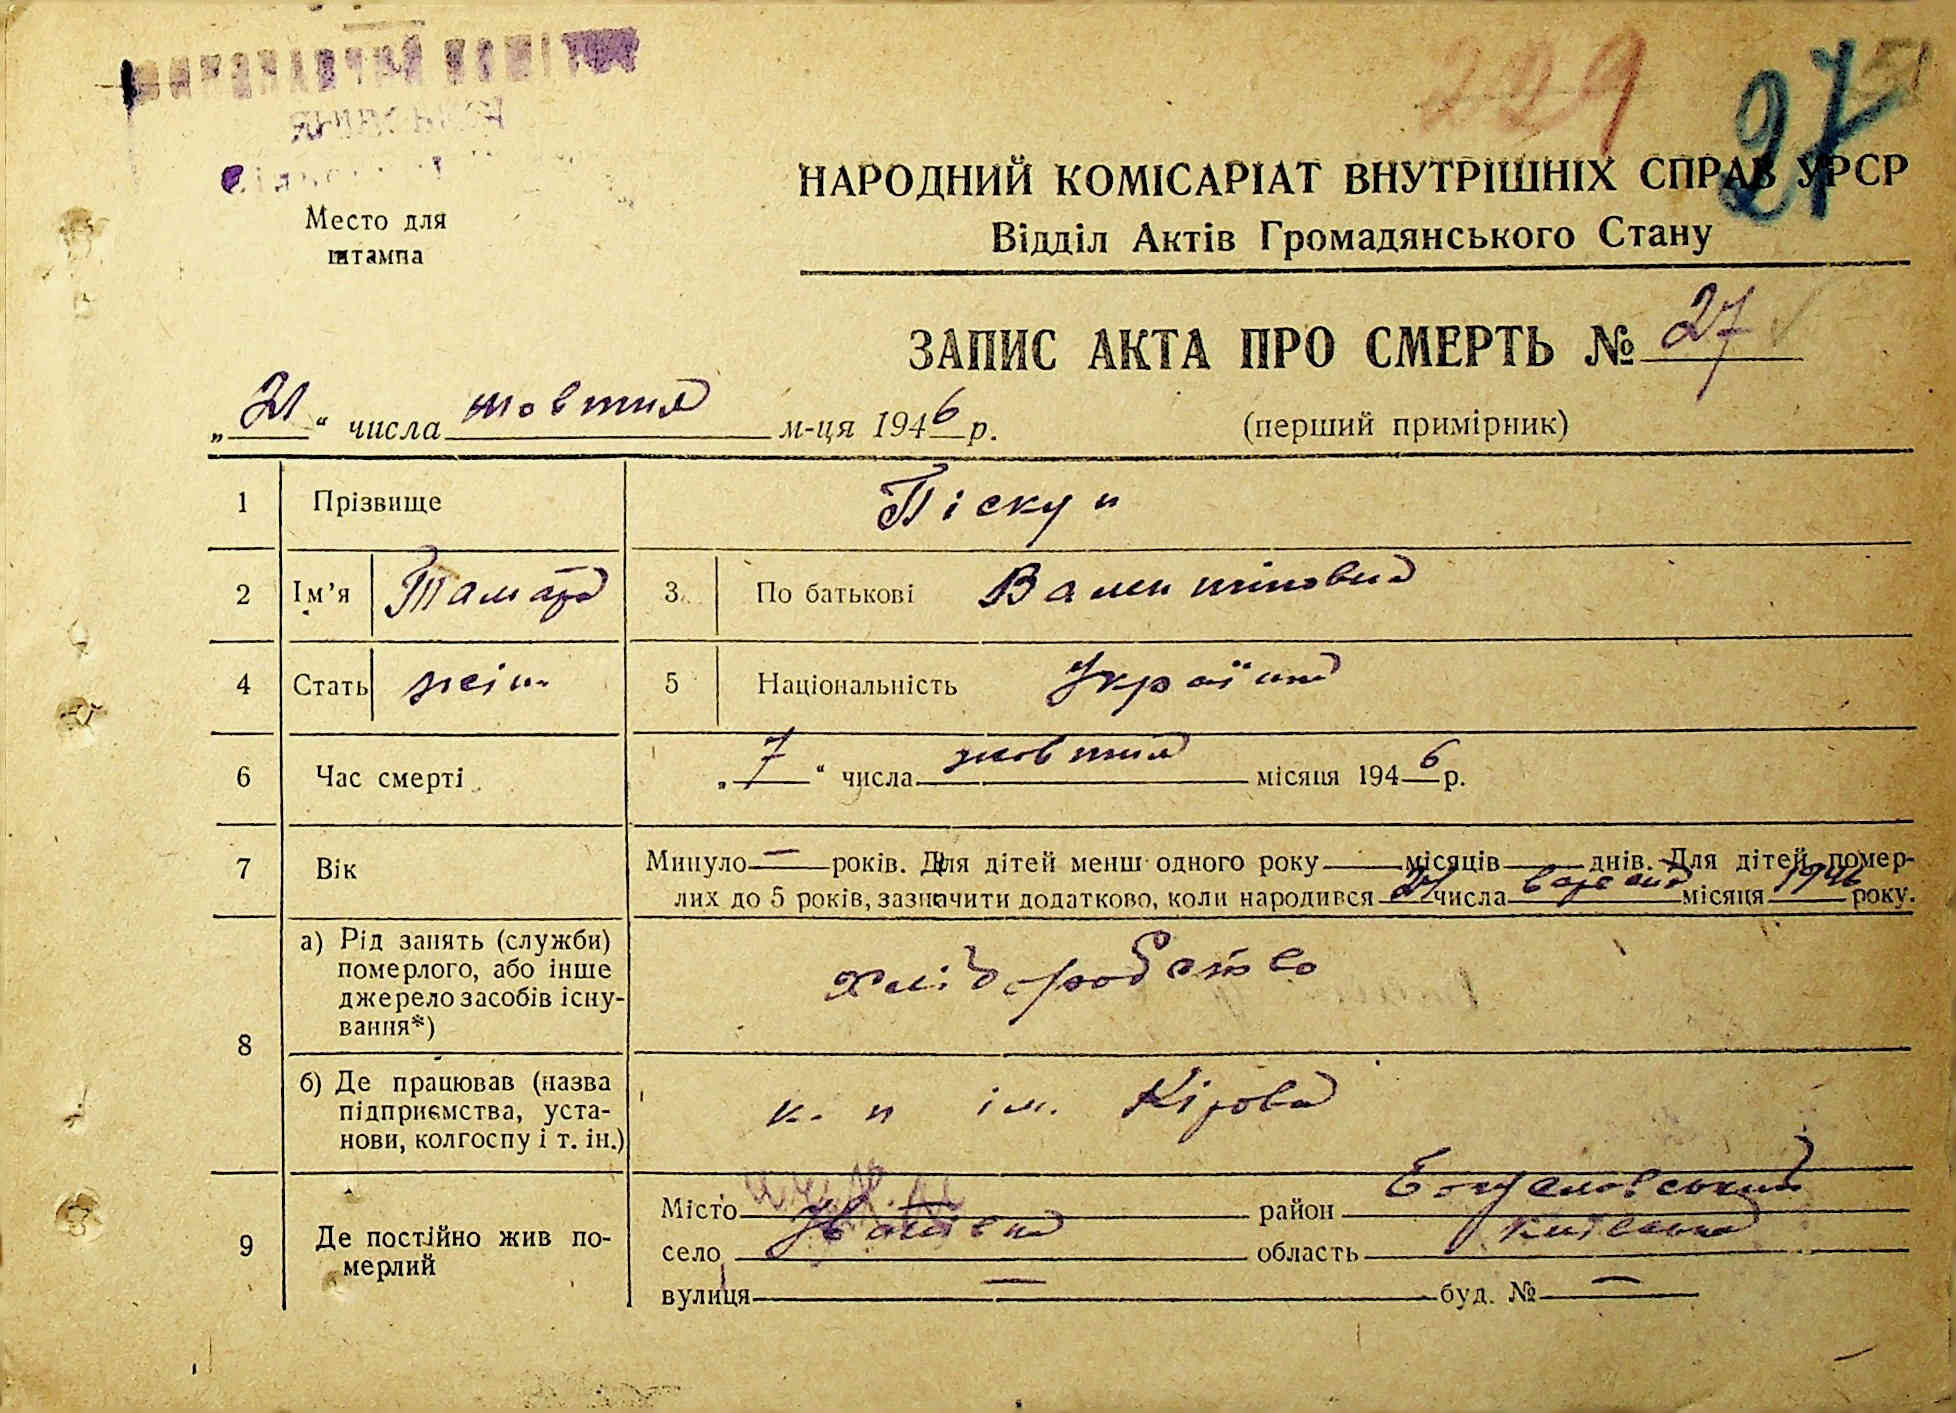 229
27
51
Место для
штампа
НАРОДНИЙ КОМІСАРІАТ ВНУТРІШНІХ СПРАВ УРСР
Відділ Актів Громадянського Стану
ЗАПИС АКТА ПРО СМЕРТЬ № 27
„21“ числа жовтня м-ця 1946 р.
(перший примірник)
1 Прізвище Піскун
2 Ім’я Тамара 3 По батькові Валентіновна
4 Стать жін. 5 Національність Україна
6 Час смерті „7“ числа жовтня місяця 1946 р.
7 Вік Минуло — років. Для дітей менш одного року місяців днів. Для дітей помер-
лих до 5 років, зазначити додатково, коли народився числа вересня місяця 1946 року.
8 а) Рід занять (служби)
померлого, або інше
джерело засобів існу-
вання*)
хліборобство
б) Де працював (назва
підприємства, уста-
нови, колгоспу і т. ін.)
к-п ім. Кірова
9 Де постійно жив по-
мерлий
Місто район Богуславський
село область Київська
вулиця — буд. № —